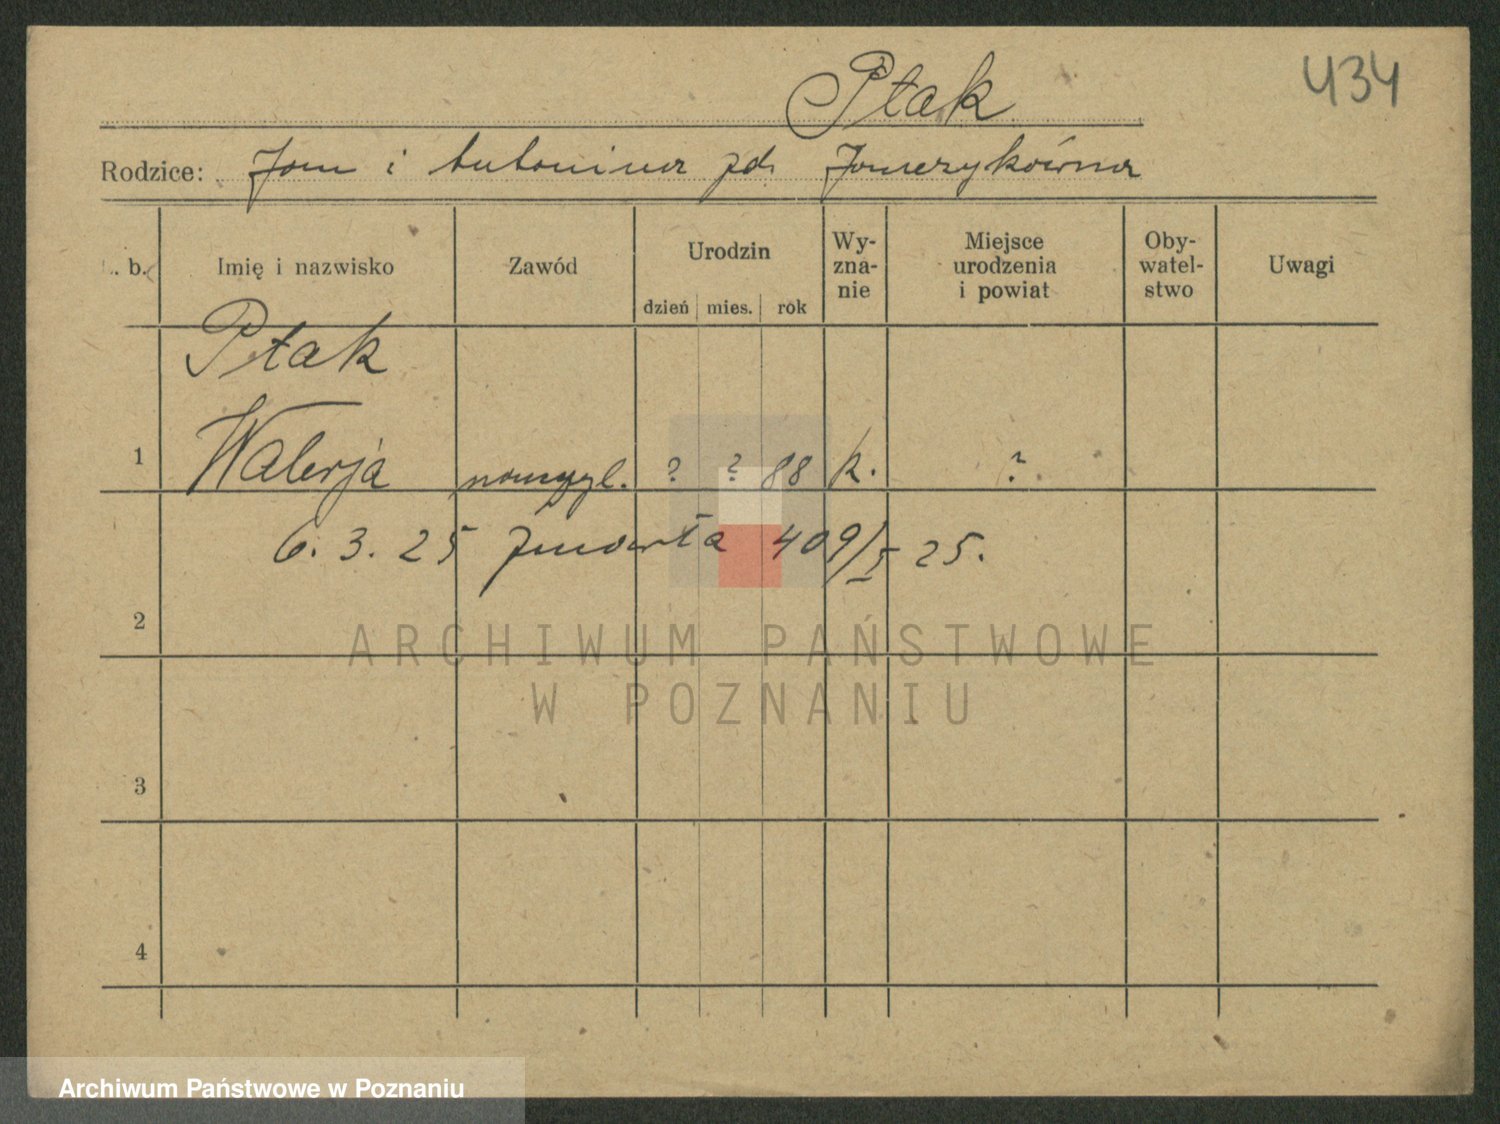 Ptak
434
Rodzice: Jan i Antonina zd. Janczykówna
L. b. Imię i nazwisko Zawód Urodzin dzień mies. rok Wy-zna-nie Miejsce urodzenia i powiat Oby-watel-stwo Uwagi
Ptak
1 Walerja ? ? 88 k. ?
6. 3. 25 zmarła 409/5 25.
2
ARCHIWUM PAŃSTWOWE
W POZNANIU
3
4
Archiwum Państwowe w Poznaniu